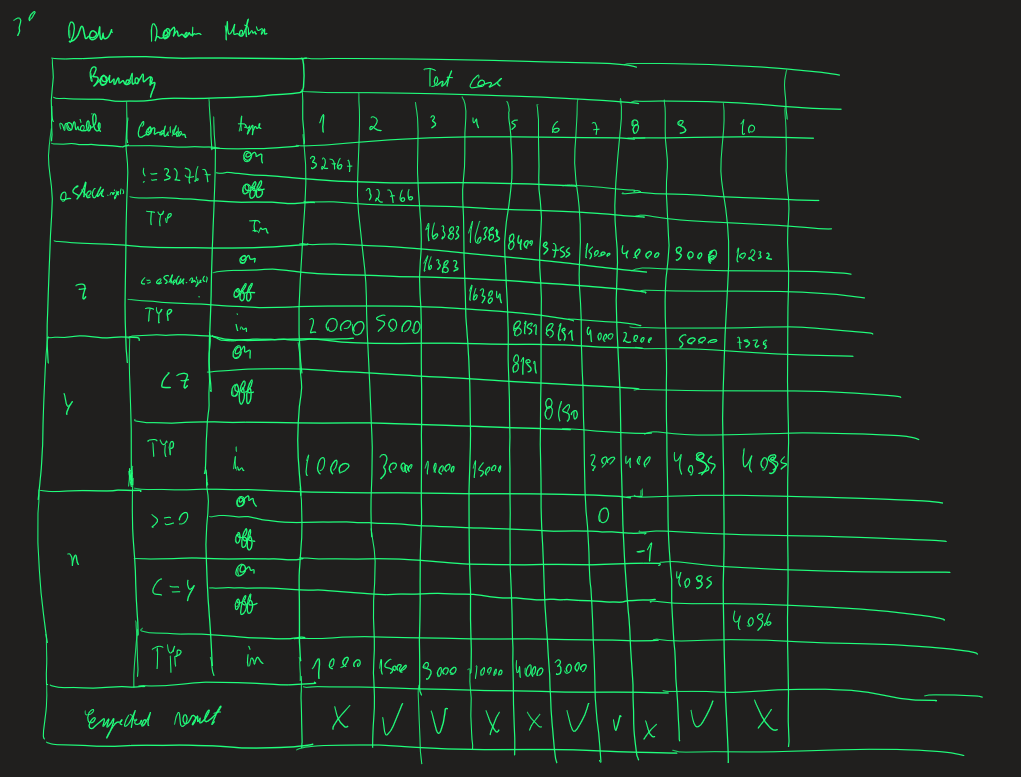 3° Draw Domain Matrix
Boundary Test Case
variable Condition type 1 2 3 4 5 6 7 8 9 10
!=32767 on 32767
off 32766
TYP In 16383 16383 8400 9755 15000 4000 9000 10232
z on 16383
off 16384
TYP in 2000 5000 8191 8191 4000 2000 5000 7525
y < z on 8191
off 8190
TYP in 1000 3000 10000 15000 300 400 4095 4095
x >=0 on 0
off -1
<=y on 4095
off 4096
TYP in 1000 1500 9000 10000 4000 3000
Expected result X V V X X V V X V X